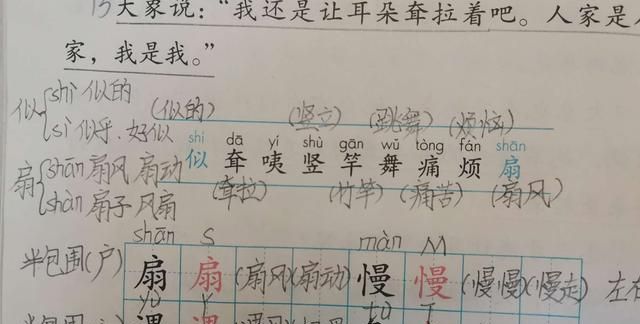 13 大象说：“我还是让耳朵耷拉着吧。人家是人
家，我是我。”
似 shì 似的 (似的) (竖立) (跳舞) (烦恼)
sì 似乎、好似
shì dā yí shù gān wǔ tòng fán shān
似 耷 咦 竖 竿 舞 痛 烦 扇
扇 shān 扇风 扇动 (耷拉) (竹竿) (痛苦) (扇风)
shàn 扇子 风扇
shān S màn M
半包围(户) 扇 扇 (扇风)(扇动) 慢 慢 (慢慢)(慢走) 左右
yù Y